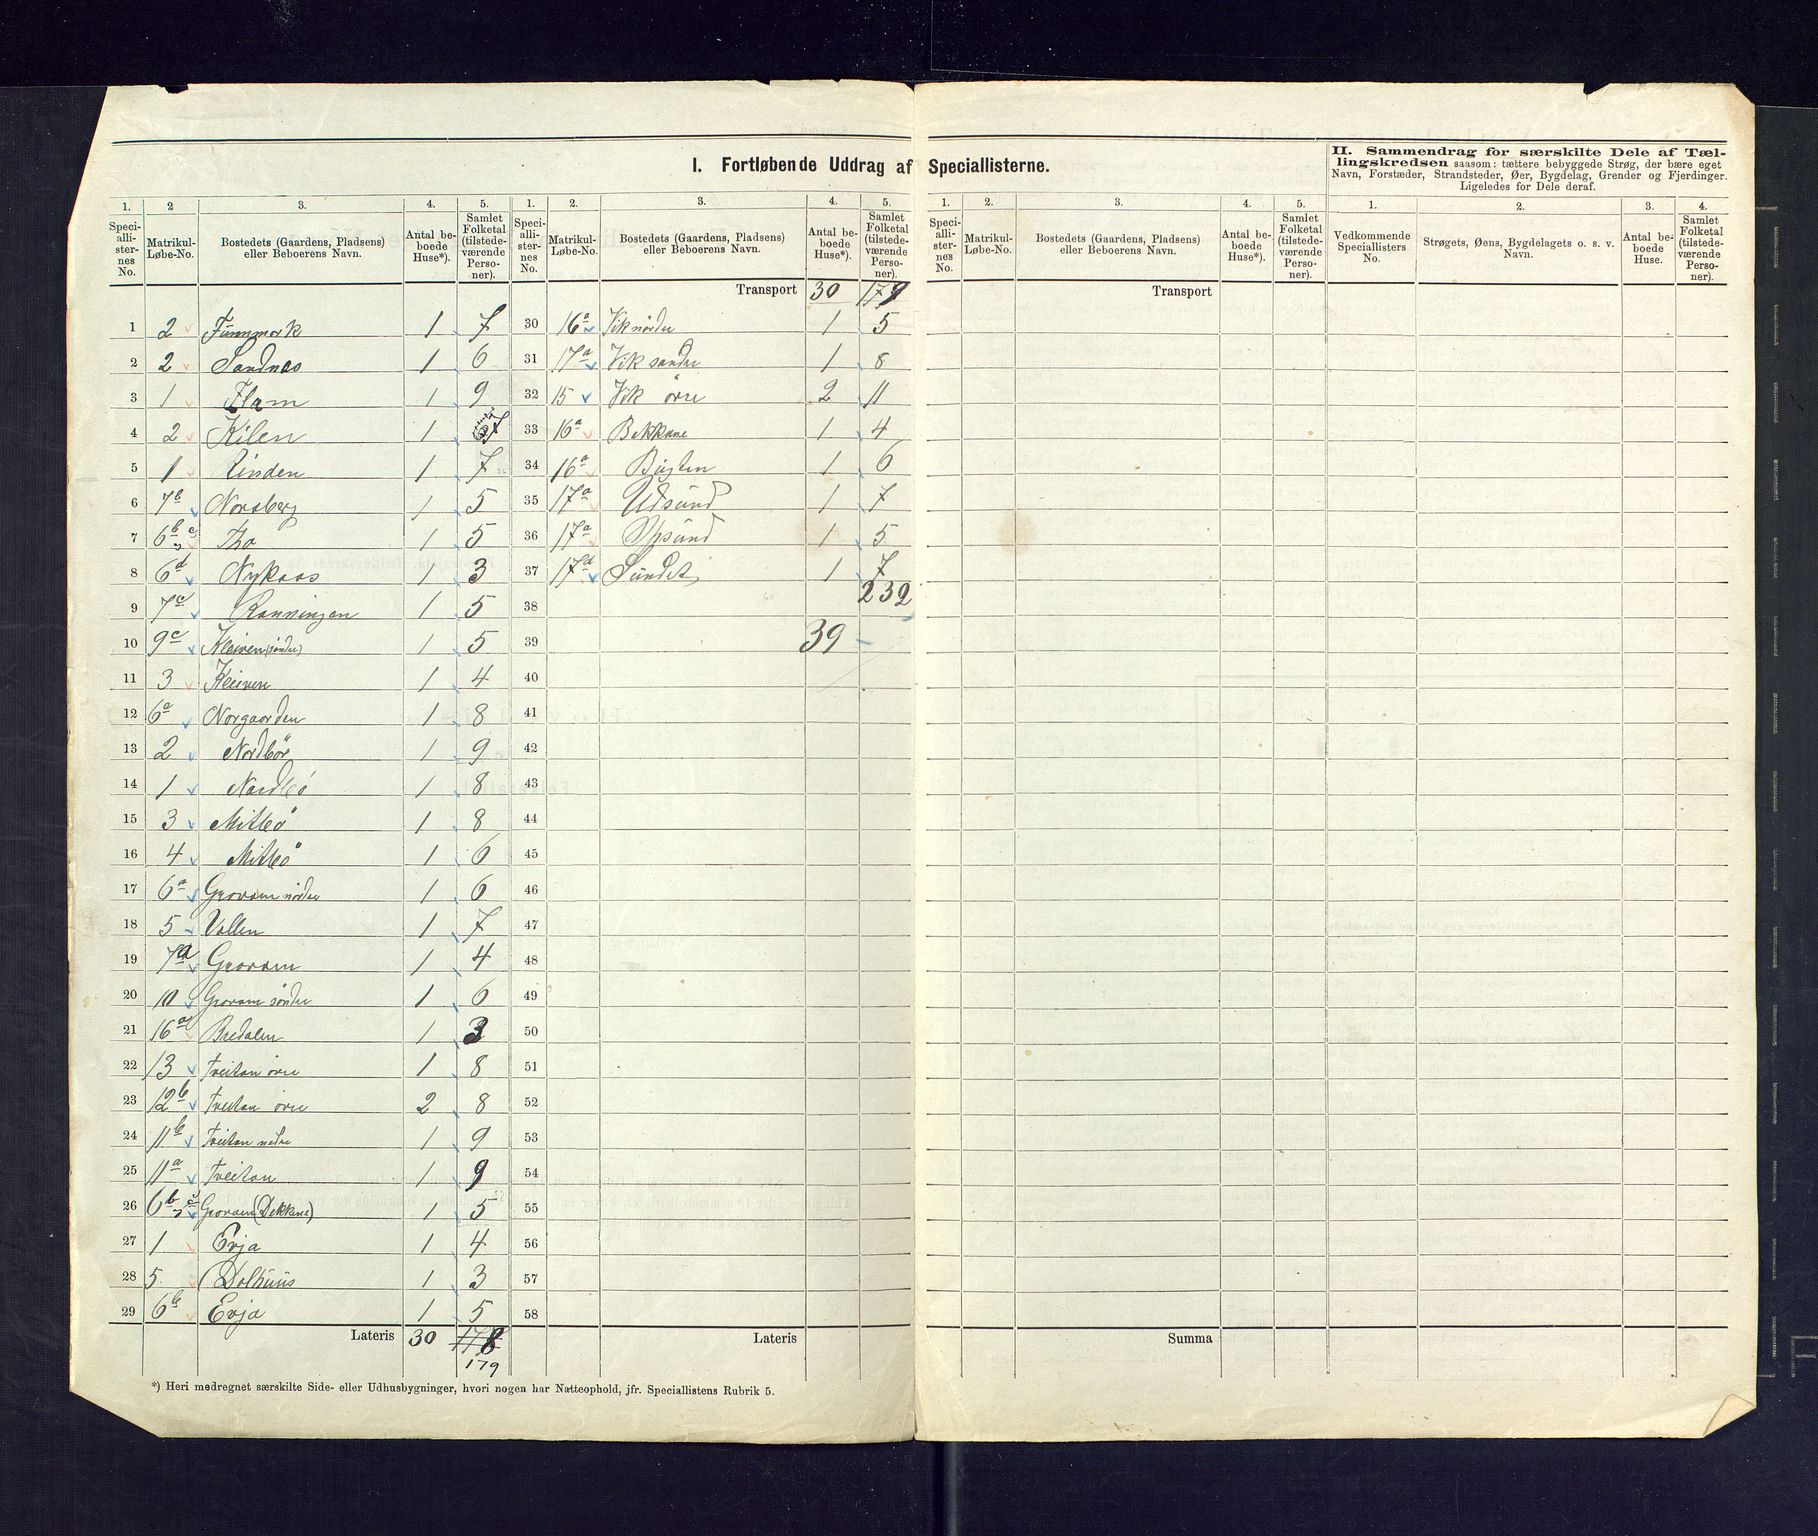 I. Fortløbende Uddrag af Speciallisterne.
II. Sammendrag for særskilte Dele af Tæl-
lingskredsen saasom: tættere bebyggede Strøg, der bære eget
Navn, Forstæder, Strandsteder, Øer, Bygdelag, Grender og Fjerdinger.
Ligeledes for Dele deraf.
1. 2 3. 4. 5. 1. 2. 3. 4. 5. 1. 2. 3. 4. 5. 1. 2. 3. 4.
Speci-alli-ster-nes No. Matrikul-Løbe-No. Bostedets (Gaardens, Pladsens) eller Beboerens Navn. Antal be-boede Huse*). Samlet Folketal (tilstede-værende Perso-ner).
Speci-alli-ster-nes No. Matrikul-Løbe-No. Bostedets (Gaardens, Pladsens) eller Beboerens Navn. Antal be-boede Huse*). Samlet Folketal (tilstede-værende Perso-ner).
Speci-alli-ster-nes No. Matrikul-Løbe-No. Bostedets (Gaardens, Pladsens) eller Beboerens Navn. Antal be-boede Huse*). Samlet Folketal (tilstede-værende Perso-ner).
Vedkommende Speciallisters No. Strøgets, Øens, Bygdelagets o. s. v. Navn. Antal be-boede Huse. Samlet Folketal (tilstede-værende Perso-ner).
1 2 Finnmork 1 7
2 2 Sandnes 1 6
3 1 Flam 1 9
4 2 Kilen 1 7
5 1 Linden 1 7
6 7b Norsberg 1 5
7 6b Tho 1 5
8 6d Nykaas 1 3
9 7c Rønningen 1 5
10 9c Kleiven (søndre) 1 5
11 3 Kleiven 1 4
12 6a Norgaarden 1 8
13 2 Nordbö 1 9
14 1 Nordbö 1 8
15 3 Mitbö 1 8
16 4 Mitbö 1 6
17 6a Grovam nördre 1 6
18 5 Vollen 1 7
19 7a Grovam 1 4
20 10 Grovam söndre 1 6
21 16a Bredalen 1 3
22 13 Tveitan övre 1 8
23 12b Tveitan övre 2 8
24 11b Tveitan nedre 1 9
25 11a Tveitan 1 9
26 6b Grovam (Dekkane) 1 5
27 1 Evja 1 4
28 5. Dalhuus 1 3
29 6b Evja 1 5
Lateris 30 178
179
Transport 30 179
30 16a Vik nördre 1 5
31 17a Vik søndre 1 8
32 15 Vik övre 2 11
33 16a Bakkane 1 4
34 16a Bugten 1 6
35 17a Udsund 1 7
36 17a Opsund 1 5
37 17d Sundet 1 7
232
38
39 39
40
41
42
43
44
45
46
47
48
49
50
51
52
53
54
55
56
57
58
Lateris
Transport
Summa
*) Heri medregnet særskilte Side- eller Udhusbygninger, hvori nogen har Natteophold, jfr. Speciallistens Rubrik 5.